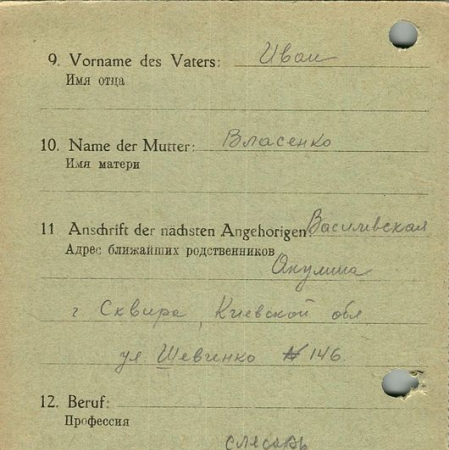 9. Vorname des Vaters: Иван
Имя отца
10. Name der Mutter: Власенко
Имя матери
11 Anschrift der nächsten Angehörigen: Василевская
Адрес ближайших родственников
Акулина
г Сквира, Киевской обл
ул Шевченко № 146
12. Beruf:
Профессия
слесарь